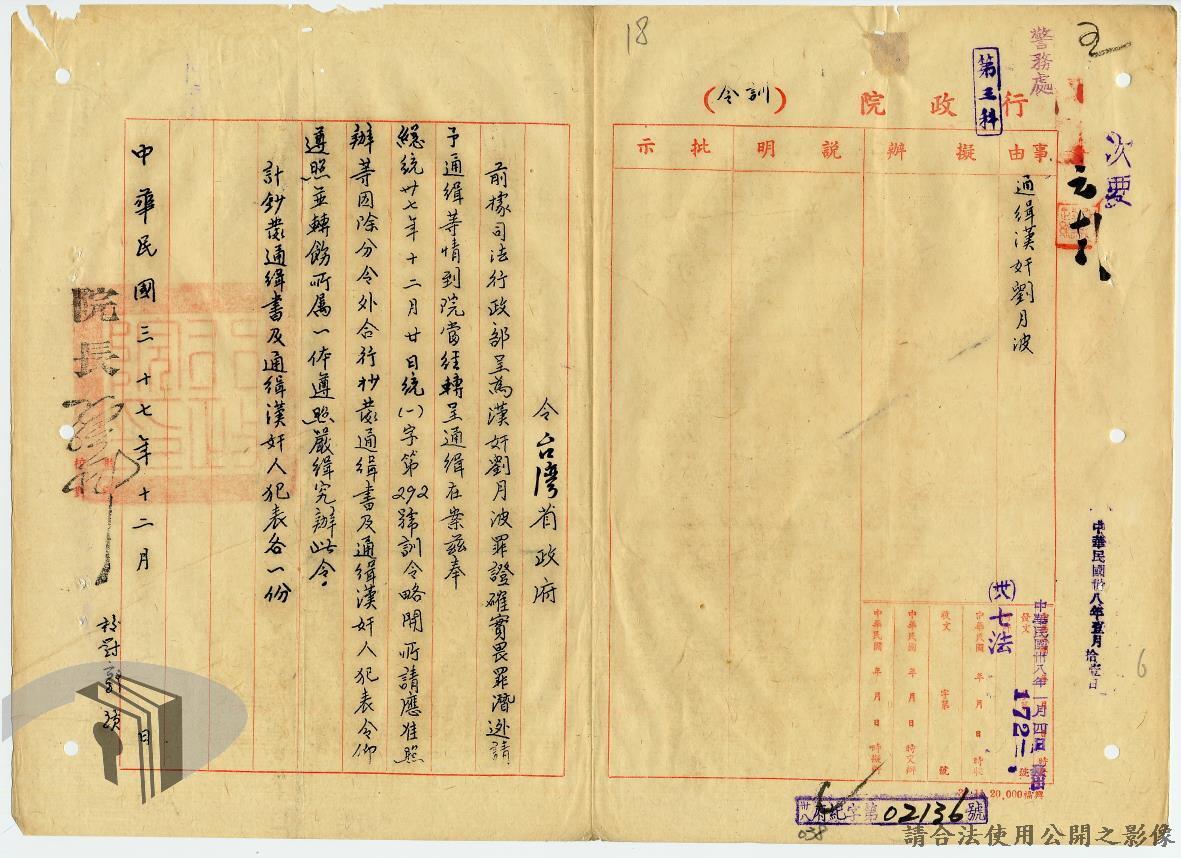 18
警務處
第三科
行政院（訓令）
次要
事由
擬辦
說明
批示
通緝漢奸劉月波
中華民國卅八年壹月拾壹日
中華民國卅八年一月四日
(卅)七法
172
發文
收文
字第
號
中華民國 年 月 日 時擬辦
中華民國 年 月 日 時交辦
中華民國 年 月 日 時收
20,000
卅八府紀字第02136號
038
6
令台灣省政府
前據司法行政部呈為漢奸劉月波罪證確實畏罪潛逃請
予通緝等情到院當經轉呈通緝在案茲奉
總統卅七年十二月廿日統(一)字第292號訓令略開所請應准照
辦等因除分令外合行抄發通緝書及通緝漢奸人犯表令仰
遵照並轉飭所屬一體遵照嚴緝究辦此令。
計鈔發通緝書及通緝漢奸人犯表各一份
中華民國三十七年十二月 日
院長
校對
請合法使用公開之影像